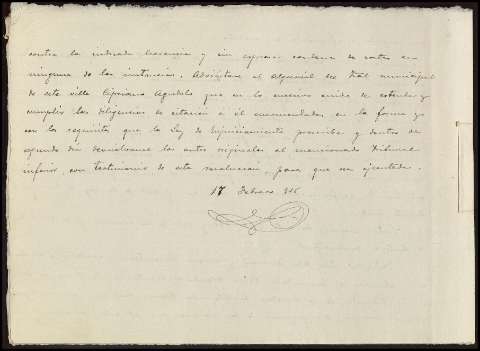 contra la indicada herencia y sin expresa condena de costas en
ninguna de las instancias. Adviértase al Alguacil del Tral municipal
de esta villa Cipriano Agudelo que en lo sucesivo cuide de extender y
cumplir las diligencias de citación a él encomendadas, en la forma y
con los requisitos que la Ley de Enjuiciamiento prescribe y dentro de
segundo día devuélvanse los autos originales al mencionado Tribunal
inferior, con testimonio de esta resolución, para que sea ejecutada.
17 Febrero